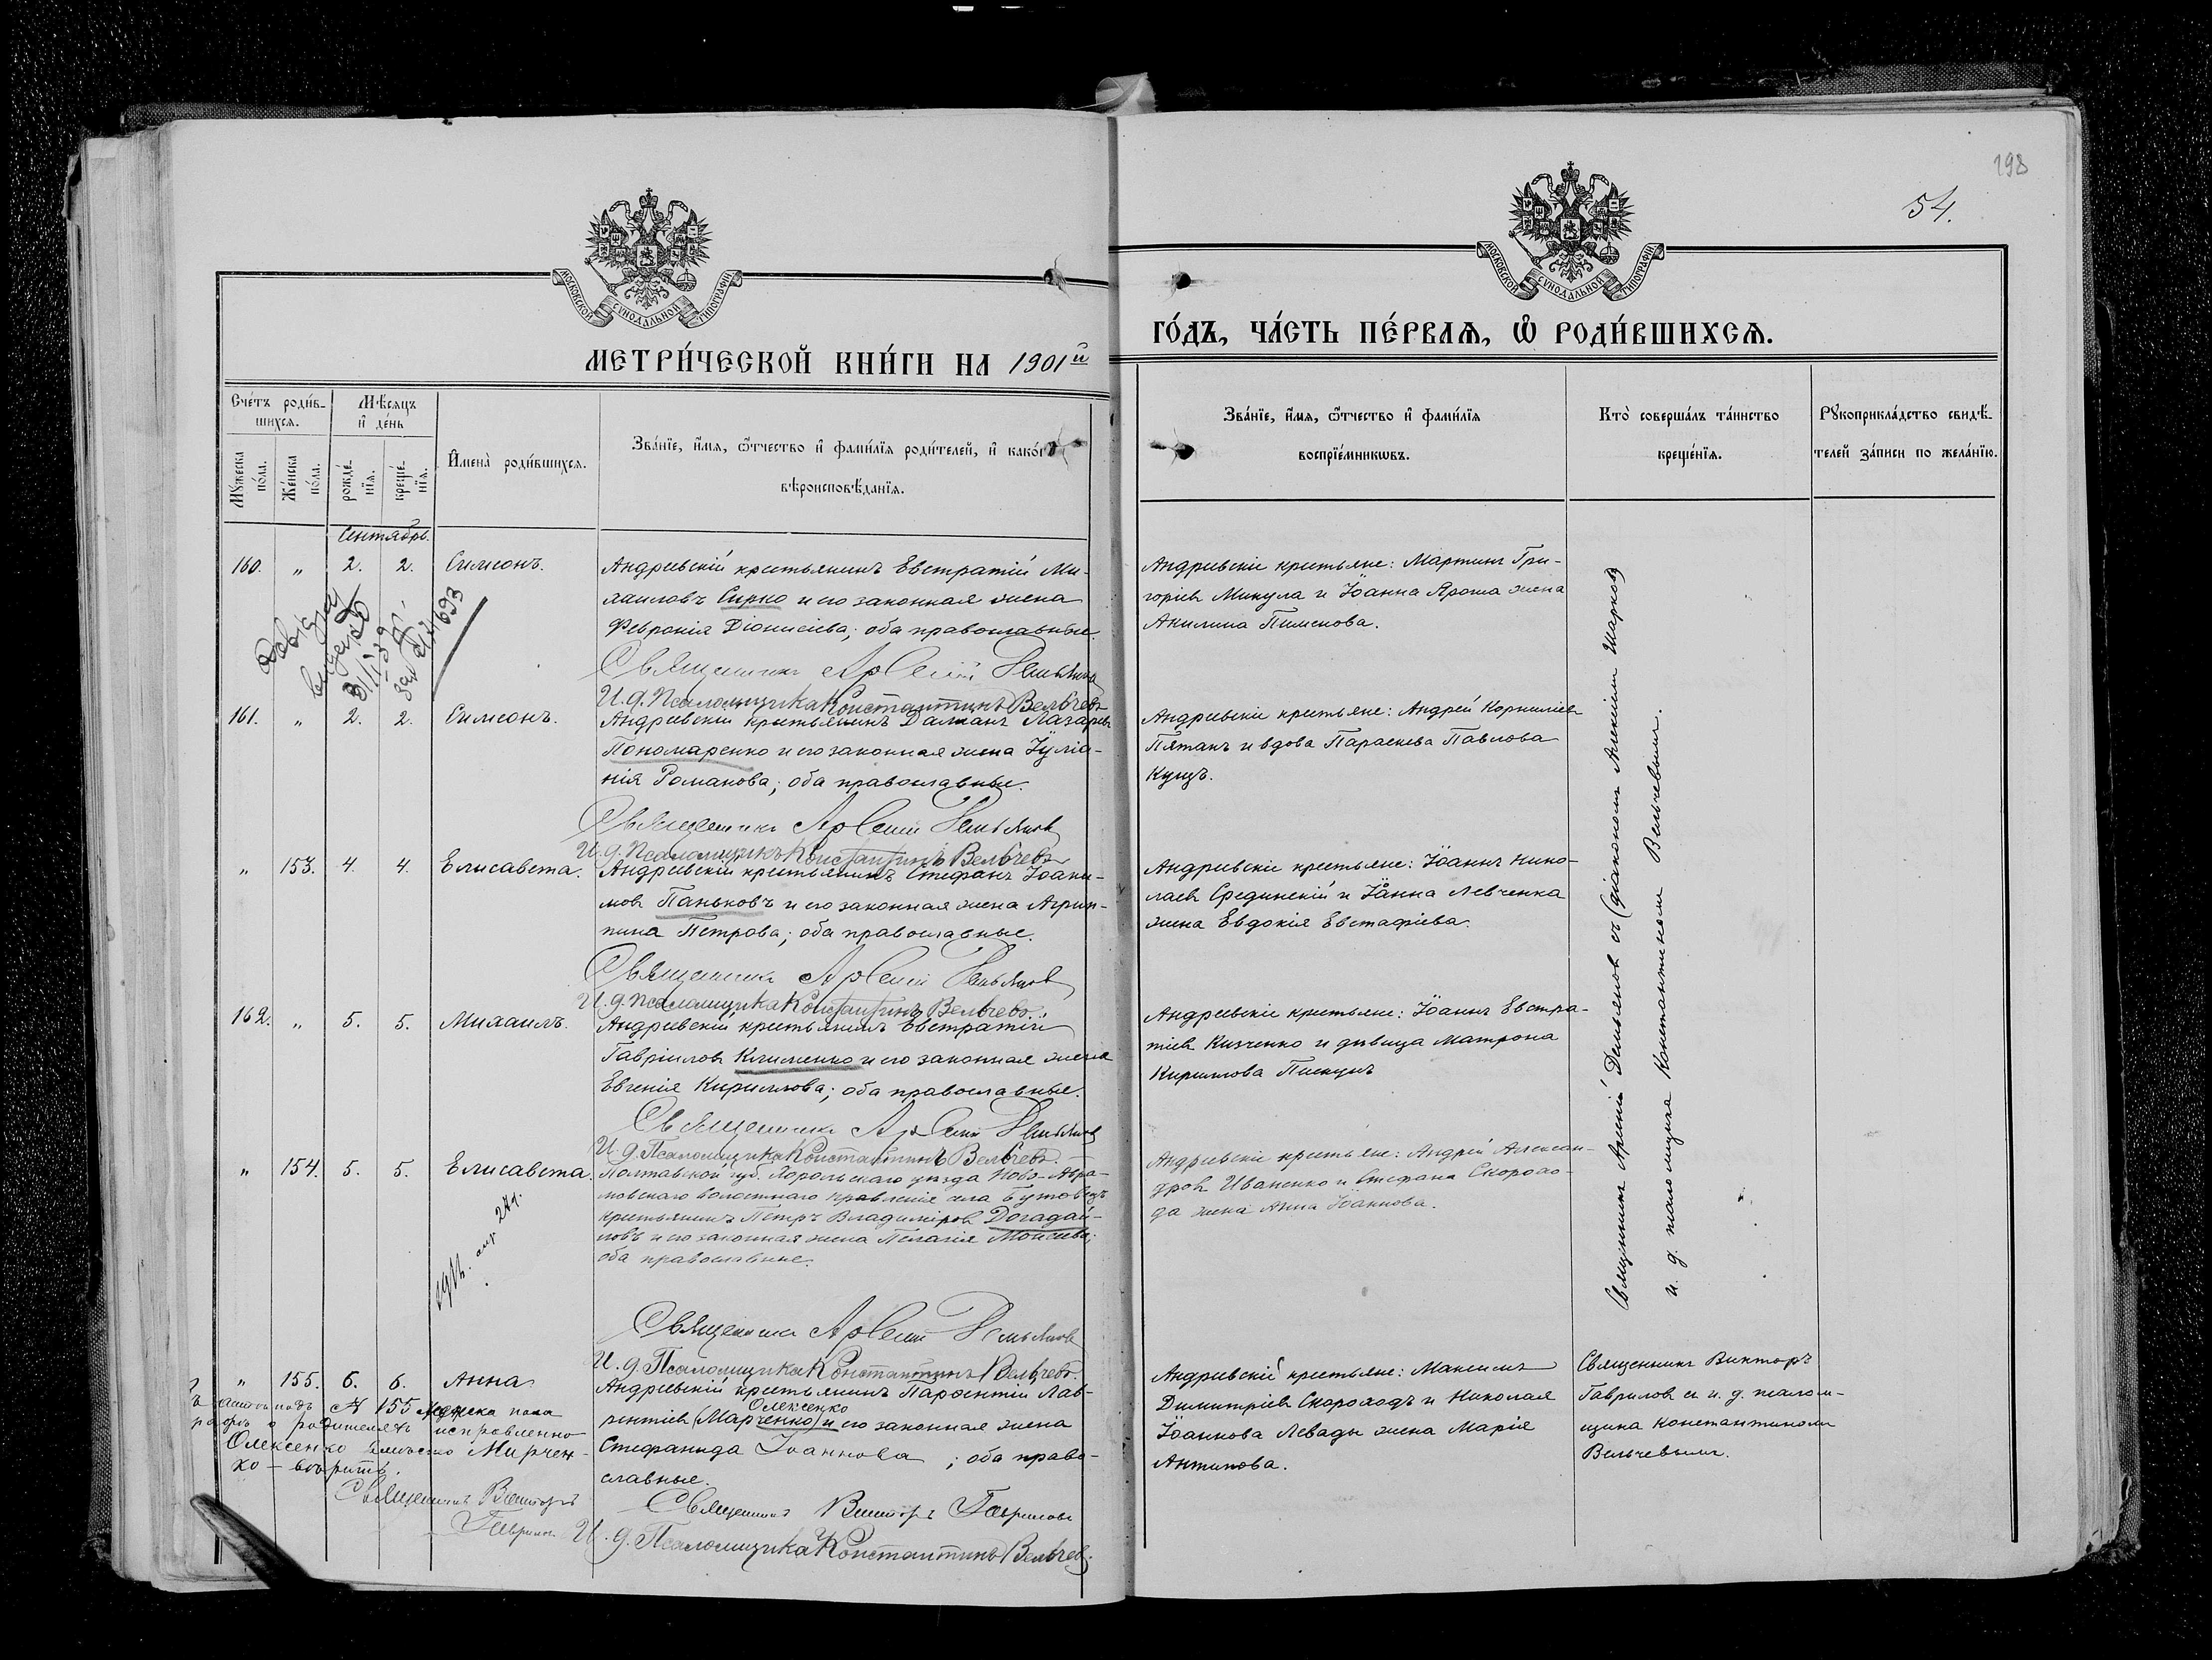 198
54.
МОСКОВСКОЙ СУНОДАЛЬНОЙ ТИПОГРАФІИ
МОСКОВСКОЙ СУНОДАЛЬНОЙ ТИПОГРАФІИ
МЕТРИ́ЧЕСКОЙ КНИ́ГИ НА 1901й
ГО́ДЪ, ЧА́СТЬ ПЕ́РВАѦ, Ѡ РОДИ́ВШИХСѦ.
Сче́тъ роди́в-
шихсѧ.
Мꙋ́жеска по́ла.
Же́нска по́ла.
Мѣ́сѧцъ и҆ де́нь
рожде́-
нїѧ.
креще́-
нїѧ.
И҆мена̀ роди́вшихсѧ.
Зва́нїе, и҆́мѧ, ѻ҆́тчество и҆ фами́лїѧ роди́телей, и҆ како́гѡ
вѣроисповѣ́данїѧ.
Зва́нїе, и҆́мѧ, ѻ҆́тчество и҆ фами́лїѧ
воспрїе́мникѡвъ.
Кто̀ соверша́лъ та́инство
креще́нїѧ.
Рꙋкоприкла́дство свидѣ́-
телей за́писи по жела́нїю.
Сентябрь.
160. „ 2. 2. Симеонъ.
Андреевскій крестьянинъ Евстратій Ми-
хаиловъ Сирко и его законная жена
Феврокія Діонисіева; оба православные.
Священникъ Арсеній Демьяновъ
И. д. Псаломщика Константинъ Вельчевъ
Андреевскіе крестьяне: Мартинъ Гри-
горіевъ Микула и Іоанна Яроша жена
Акилина Пименова.
31/I 39
161. „ 2. 2. Симеонъ.
Андреевскій крестьянинъ Даміанъ Лазаревъ
Пономаренко и его законная жена Іуліа-
нія Романова; оба православные.
Священникъ Арсеній Демьяновъ
И. д. Псаломщикъ Константинъ Вельчевъ
Андреевскіе крестьяне: Андрей Корниліевъ
Пятакъ и вдова Параскева Павлова
Куцъ.
„ 153. 4. 4. Елисавета.
Андреевскій крестьянинъ Стефанъ Іоаки-
мовъ Паньковъ и его законная жена Агрип-
пина Петрова; оба православные.
Священникъ Арсеній Демьяновъ
И. д. Псаломщика Константинъ Вельчевъ
Андреевскіе крестьяне: Іоаннъ Нико-
лаевъ Срединскій и Іоанна Левченка
жена Евдокія Евстафіева.
162. „ 5. 5. Михаилъ.
Андреевскій крестьянинъ Евстратій
Гавріиловъ Клименко и его законная жена
Евгенія Кириллова; оба православные.
Священникъ Арсеній Демьяновъ
И. д. Псаломщика Константинъ Вельчевъ.
Андреевскіе крестьяне: Іоаннъ Евстра-
тіевъ и дѣвица Матрона
Кириллова Пискунъ
„ 154. 5. 5. Елисавета.
Полтавской губ. Хорольскаго уѣзда Ново-Авра-
мовскаго волостнаго правленія села
крестьянинъ Петръ Владиміровъ Догадай-
ловъ и его законная жена Пелагія Моисеева;
оба православные.
Священникъ Арсеній Демьяновъ
И. д. Псаломщика Константинъ Вельчевъ.
Андреевскіе крестьяне: Андрей Алексан-
дровъ Иваненко и Стефана Скорохо-
да жена Анна Іоаннова.
Священникъ Арсеній Демьяновъ съ (діакономъ Алексіемъ Шарковъ)
и. д. псаломщика Константиномъ Вельчевымъ.
„ 155. 6. 6. Анна.
Андреевскій крестьянинъ Парѳентій Лав-
Олексенко
рентіевъ (Марченко) и его законная жена
Стефанида Іоаннова; оба право-
славные.
Священникъ Викторъ Гавриловъ
И. д. Псаломщика Константинъ Вельчевъ.
Андреевскій крестьяне: Максимъ
Димитріевъ Скороходъ и Николая
Іоаннова Левады жена Марія
Антипова.
Священникъ Викторъ
Гавриловъ съ и. д. псалом-
щика Константиномъ
Вельчевымъ.
подъ № 155 женска пола
о родителяхъ исправленно
Олексенко вмѣсто Марчен-
ко — вѣрить.
Священникъ Викторъ
Гавриловъ